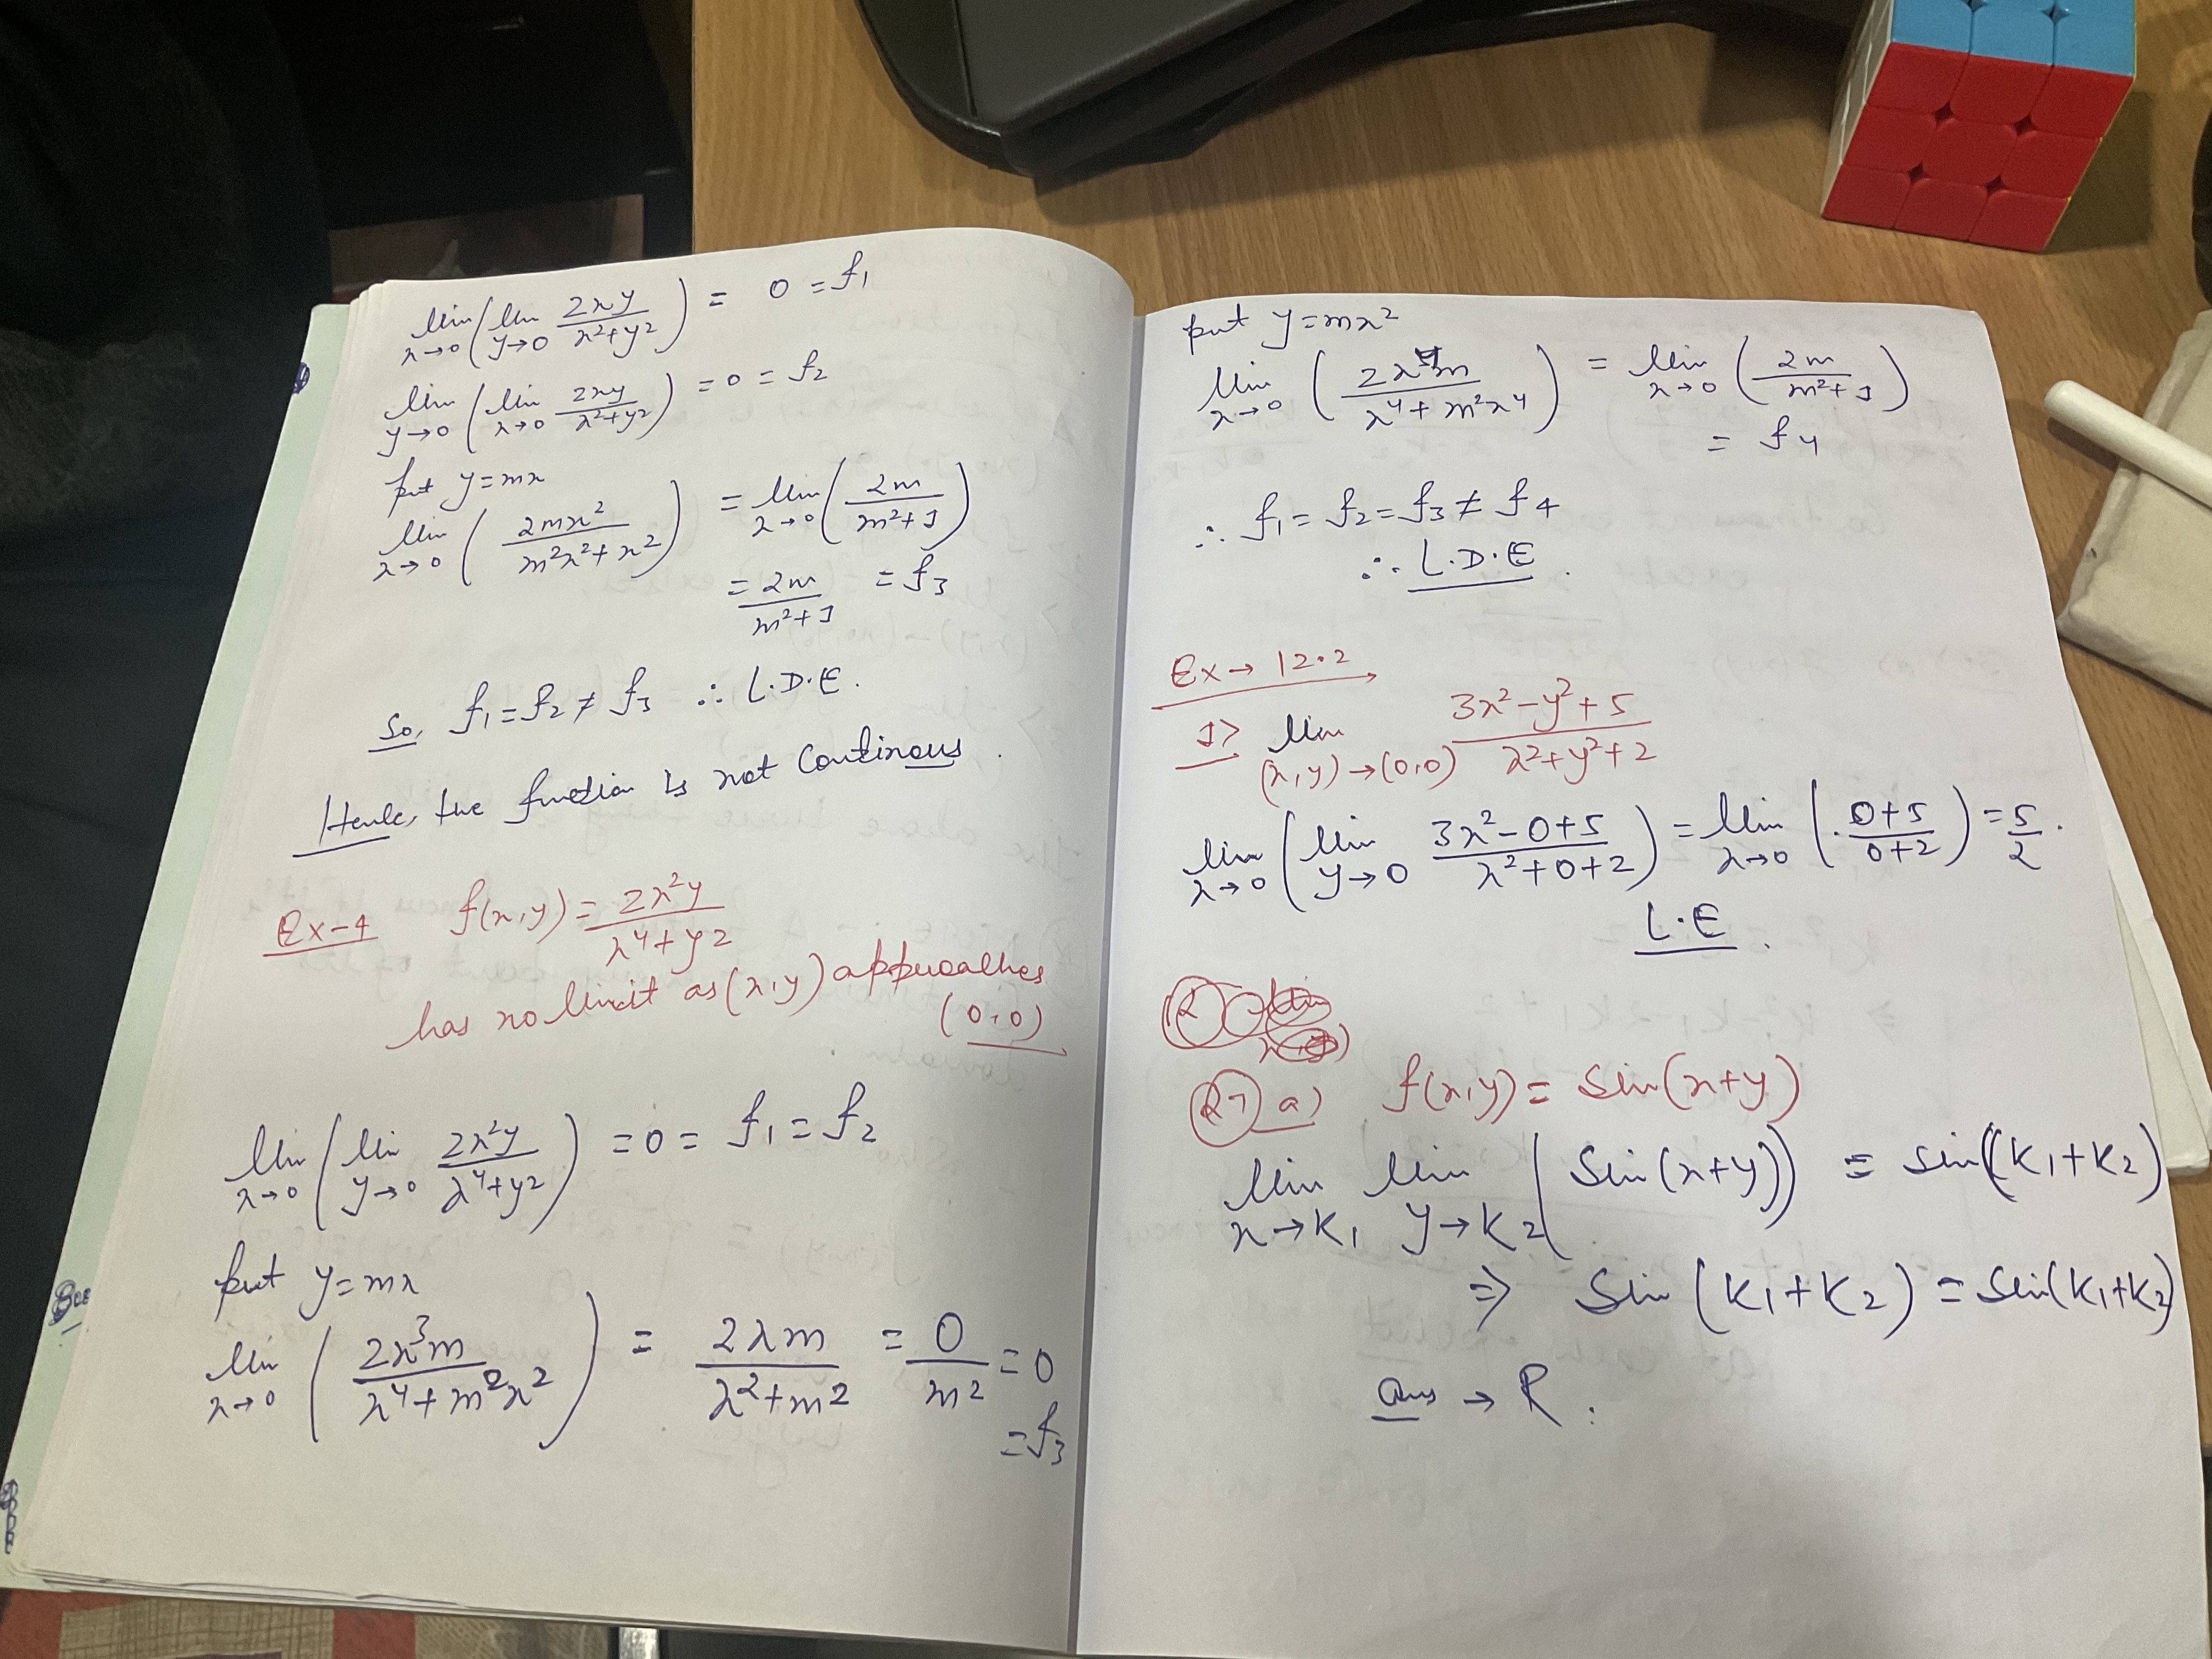 lim x→0 ( lim y→0 2xy/(x²+y²) ) = 0 = f₁
lim y→0 ( lim x→0 2xy/(x²+y²) ) = 0 = f₂
put y=mx
lim x→0 ( 2mx²/(m²x²+x²) ) = lim x→0 ( 2m/(m²+1) )
= 2m/(m²+1) = f₃
So, f₁=f₂≠f₃ ∴ L.D.E.
Hence, the function is not Continous.
Ex-4 f(x,y) = 2x²y/(x⁴+y²)
has no limit as (x,y) approaches
(0,0)
lim x→0 ( lim y→0 2x²y/(x⁴+y²) ) = 0 = f₁ = f₂
put y=mx
lim x→0 ( 2x³m/(x⁴+m²x²) ) = 2xm/(x²+m²) = 0/m² = 0
= f₃
put y=mx²
lim x→0 ( 2x⁴m/(x⁴+m²x⁴) ) = lim x→0 ( 2m/(m²+1) )
= f₄
∴ f₁=f₂=f₃≠f₄
∴ L.D.E.
Ex→12.2
1> lim (x,y)→(0,0) (3x²-y²+5)/(x²+y²+2)
lim x→0 ( lim y→0 (3x²-0+5)/(x²+0+2) ) = lim x→0 ( (0+5)/(0+2) ) = 5/2.
L.E.
27 a) f(x,y) = Sin(x+y)
lim x→K₁ lim y→K₂ ( Sin(x+y)) = Sin(K₁+K₂)
⇒ Sin (K₁+K₂) = Sin(K₁+K₂)
ans → R.